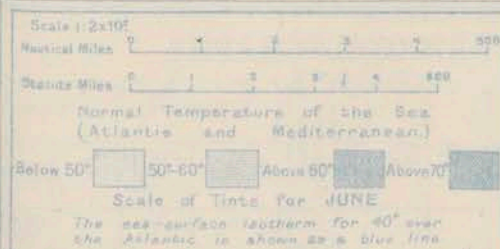 Scale 1:2x10⁷
Nautical Miles 0 1 2 3 4 500
Statute Miles 0 1 2 3 4 600
Normal Temperature of the Sea
(Atlantic and Mediterranean.)
Below 50° 50°-60° Above 60° Above 70°
Scale of Tints for JUNE
The sea-surface isotherm for 40° over
the Atlantic is shown as a blue line